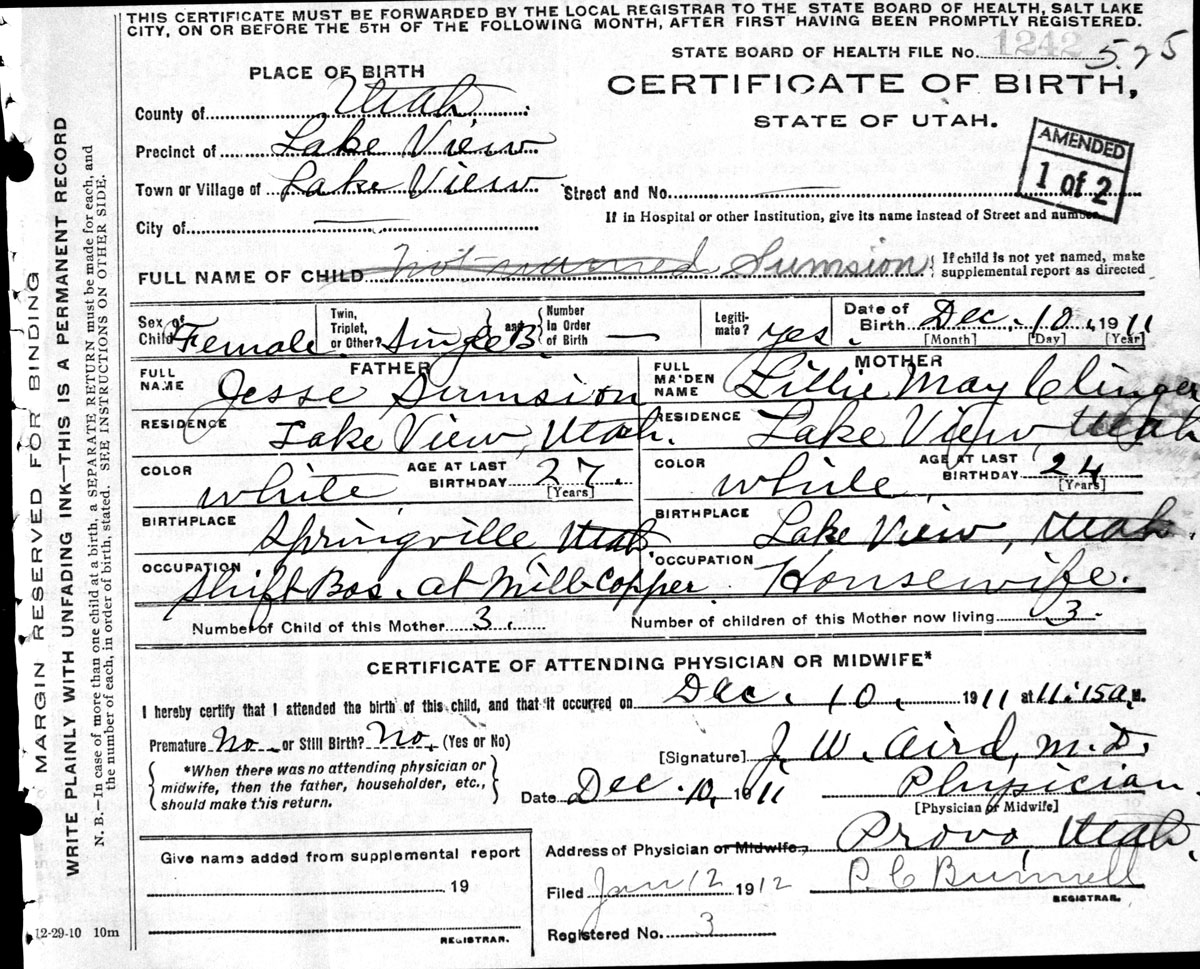 THIS CERTIFICATE MUST BE FORWARDED BY THE LOCAL REGISTRAR TO THE STATE BOARD OF HEALTH, SALT LAKE
CITY, ON OR BEFORE THE 5TH OF THE FOLLOWING MONTH, AFTER FIRST HAVING BEEN PROMPTLY REGISTERED.
STATE BOARD OF HEALTH FILE No. 1242 575
PLACE OF BIRTH
CERTIFICATE OF BIRTH,
STATE OF UTAH.
AMENDED
1 of 2
County of Utah
Precinct of Lake View
Town or Village of Lake View
Street and No. —
If in Hospital or other Institution, give its name instead of Street and number.
City of —
FULL NAME OF CHILD not named Sumsion { If child is not yet named, make
supplemental report as directed
Sex of Child Female
Twin, Triplet, or Other? Single B.
and Number In Order of Birth —
Legiti-mate? yes.
Date of Birth Dec. 10, 1911
[Month] [Day] [Year]
FATHER
FULL NAME Jesse Sumsion
MOTHER
FULL MAIDEN NAME Lillie May Clinger
RESIDENCE Lake View, Utah.
RESIDENCE Lake View, Utah
COLOR white AGE AT LAST BIRTHDAY 27. [Years]
COLOR white, AGE AT LAST BIRTHDAY 24 [Years]
BIRTHPLACE Springville, Utah.
BIRTHPLACE Lake View, Utah.
OCCUPATION Shift Bos. at Mill-Copper.
OCCUPATION Housewife.
Number of Child of this Mother 3.
Number of children of this Mother now living 3.
CERTIFICATE OF ATTENDING PHYSICIAN OR MIDWIFE*
I hereby certify that I attended the birth of this child, and that it occurred on Dec. 10, 1911 at 11:15 a. M.
Premature No or Still Birth? No. (Yes or No)
[Signature] J. W. Aird, M.D.
*When there was no attending physician or
midwife, then the father, householder, etc.,
should make this return.
Date Dec. 10, 1911
Physician.
[Physician or Midwife]
Address of Physician or Midwife, Provo, Utah.
Give name added from supplemental report
19
REGISTRAR.
Filed Jan 12 1912 P C Bunnell
REGISTRAR.
Registered No. 3
12-29-10 10m
MARGIN RESERVED FOR BINDING
WRITE PLAINLY WITH UNFADING INK—THIS IS A PERMANENT RECORD
N. B.—In case of more than one child at a birth, a SEPARATE RETURN must be made for each, and
the number of each, in order of birth, stated. SEE INSTRUCTIONS ON OTHER SIDE.